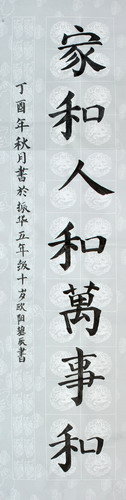 家和人和萬事和
丁酉年秋月書於振华五年级十岁欧阳懿辰書